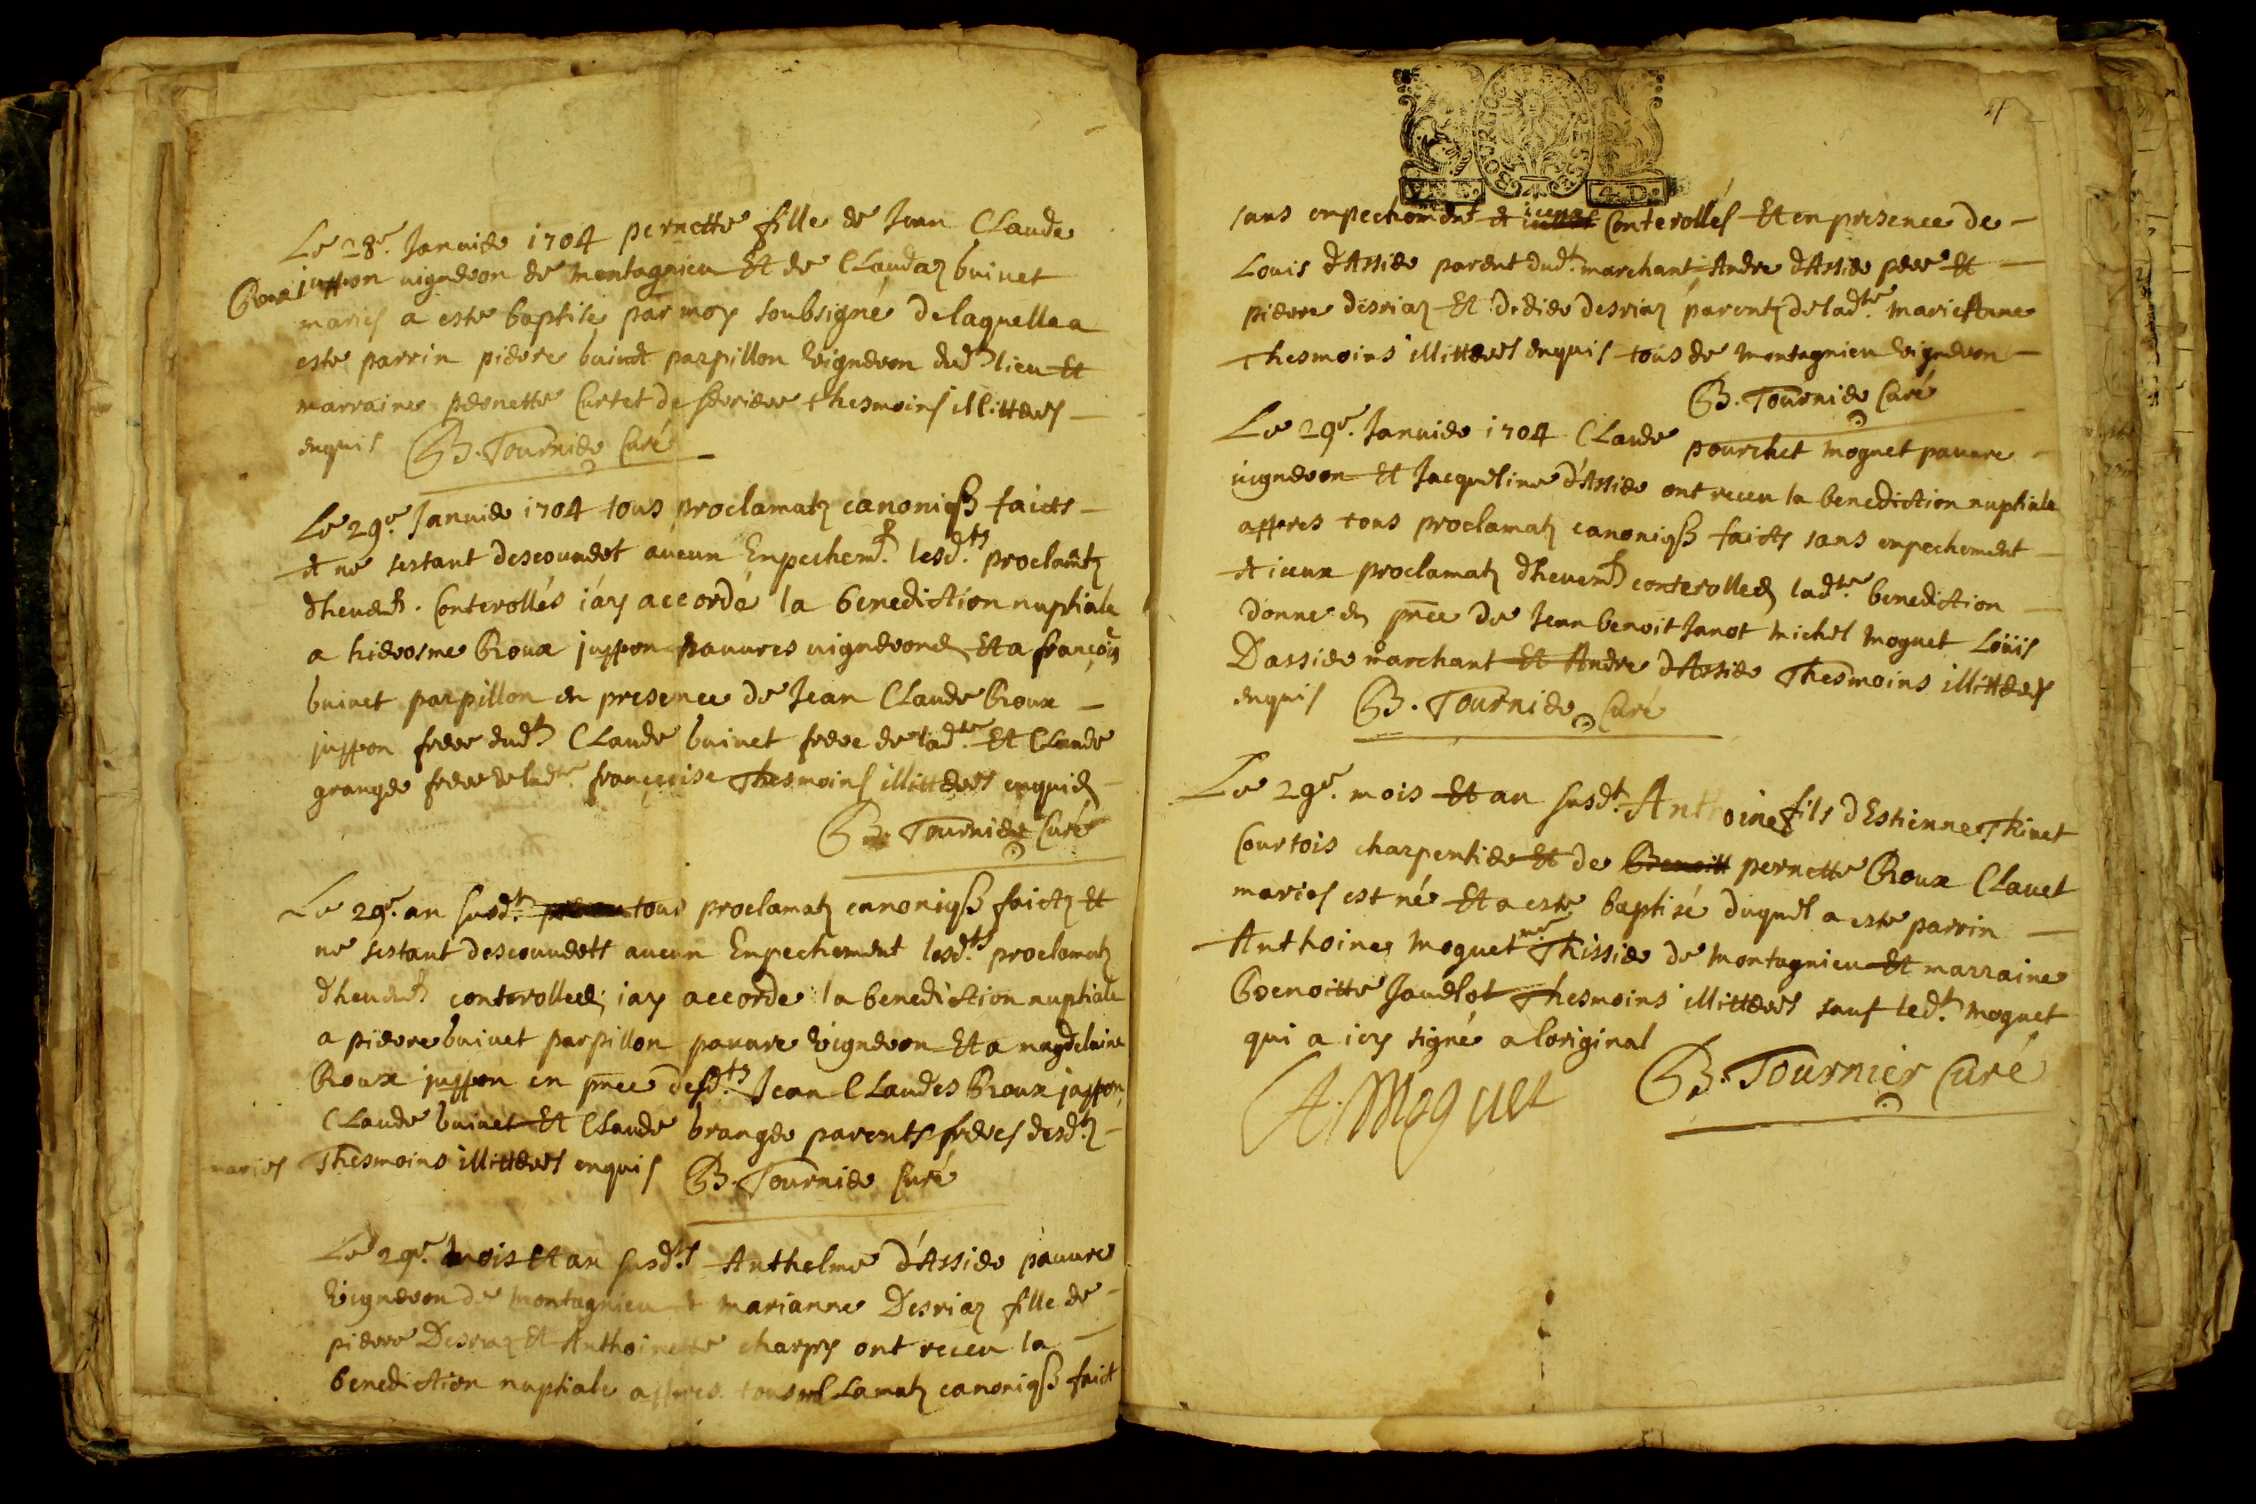 Le 28e. Januier 1704 pernette fille de Jean Claude
Roux juppon uigneron de montagnieu Et de Claudaz buinet
mariés a esté baptisé par moy soubsigné delaquelle a
esté parrin pierre buinet parpillon Vigneron dudt lieu Et
marraine pernette Curtet de thesmoins illitterés
enquis B. Tournier Curé
Le 29e. Januier 1704 tous proclamatz canoniqs faicts
et ne sestant descouuert aucun Enpechemt. lesdts. proclamatz
dheuemt. Conterollés iay accordé la benediction nuptiale
a hierosme Roux juppon pauures uignerons Et a françois
buinet parpillon en presence de Jean Claude Roux
juppon frere dudt Claude buinet frere de ladte Et Claude
granger frere de ladte. françoise Thesmoins illitterés enquis
B. Tournier Curé
Le 29e. an susdt. tous proclamatz canoniqs faictz Et
ne sestant descouuertt aucun Enpechement lesdts proclamatz
dheuemt conterolles iay accorde la benediction nuptiale
a pierre buinet parpillon pauure Vigneron Et a magdelaine
Roux juppon en pnce desdts. Jean Claudes Roux juppon,
Claude buinet Et Claude branger parents freres desdtz
mariés Thesmoins illitterés enquis B. Tournier Curé
Le 29e. mois Et an susdts Anthelme d'Assier pauure
Vigneron de montagnieu et marianne Desriaz fille de
pierre Desriaz Et Anthoinette charpy ont receu la
benediction nuptiale appres tous clamatz canoniqs faict
BOURG
4 D.
sans enpechement et iceux Conterollés Et en presence de
Louis d'Assier parent dudt. marchant, Andre d'Assier pere Et
pierre desriaz Et didier desriaz parentz de ladte. marieAnne
Thesmoins illitterés enquis tous de montagnieu Vigneron
B. Tournier Curé
Le 29e. Januier 1704 Claude pourchet moguet pauure
uigneron Et Jacqueline d'Assier ont receu la benediction nuptiale
appres tous proclamatz canoniqs faicts sans enpechement
et iceux proclamatz dheuemt conterolles ladte. benediction
donne en pnce de Jean benoit Janot michel moguet Loüis
Dassier marchant Et Andre d'Assier Thesmoins illitterés
enquis B. Tournier Curé
Le 29e. mois Et an susdt. Anthoine fils d'Estienne Thinet
Courtois charpentier Et de Benoitt pernette Roux Clauet
mariés est né Et a esté baptisé duquel a esté parrin
Anthoine moguet me Thissier de montagnieu Et marraine
Benoitte Jaudlot Thesmoins illitterés sauf ledt. moguet
qui a icy signé a loriginal
A. Moguet B. Tournier Curé